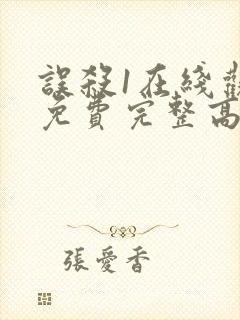 誤殺1在綫觀
免費完整高
張愛香